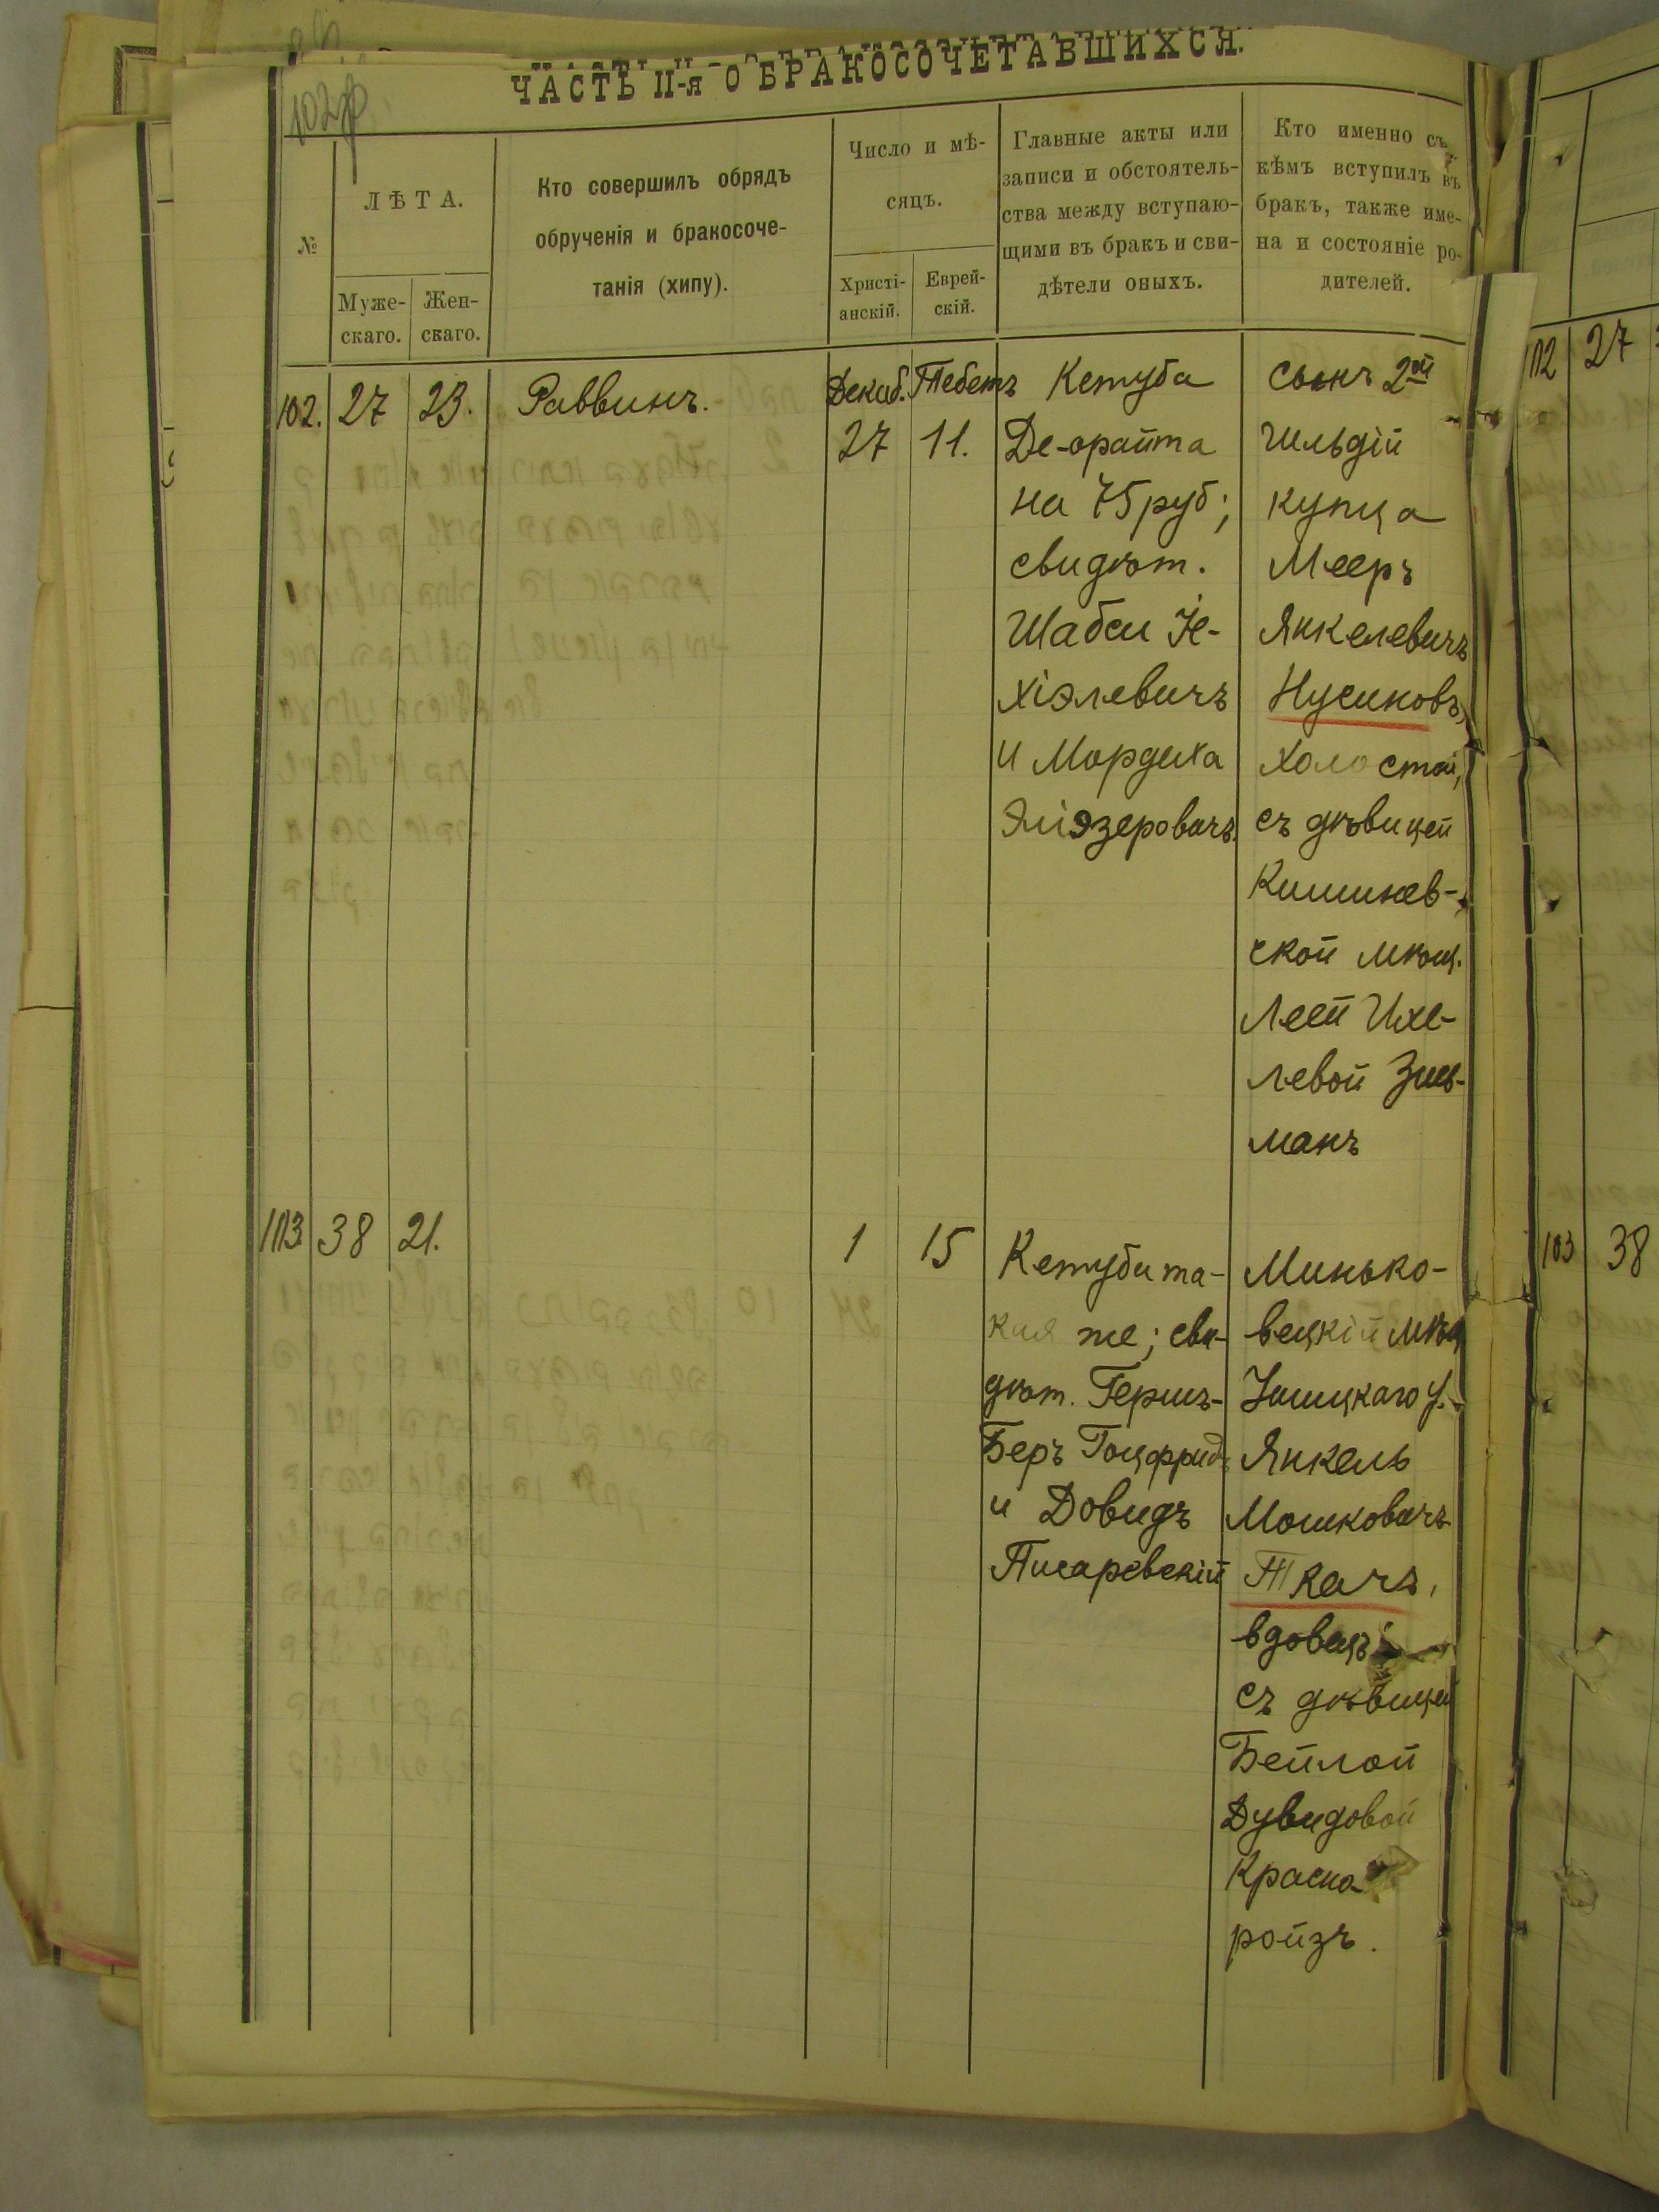 102 об.
ЧАСТЬ II-я О БРАКОСОЧЕТАВШИХСЯ.
№
ЛѢТА.
Муже-
скаго.
Жен-
скаго.
Кто совершилъ обрядъ
обрученія и бракосоче-
танія (хипу).
Число и мѣ-
сяцъ.
Христі-
анскій.
Еврей-
скій.
Главные акты или
записи и обстоятель-
ства между вступаю-
щими въ бракъ и сви-
дѣтели оныхъ.
Кто именно съ
кѣмъ вступилъ въ
бракъ, также име-
на и состояніе ро-
дителей.
102. 27 23. Раввинъ.
Декаб. Тебетъ
27 11.
Кетуба
Де-орайта
на 75 руб;
свидѣт.
Шабси Іе-
хіэлевичъ
и Мордиха
Эліэзеровичъ.
сынъ 2ой
гильдій
купца
Мееръ
Янкелевичъ
Нусиновъ,
холостой,
съ дѣвицей
Кишинев-
ской мѣщ.
Леей Ихе-
левой Зиль-
манъ
103 38 21.
1 15
Кетуби та-
кия же; сви-
дѣт. Гершъ-
Беръ Гоцфридъ
и Довидъ
Писаревскій
Минько-
вецкій мѣщ
Ушицкаго у.
Янкель
Мошковичъ
Ткачъ,
вдовецъ
съ дѣвицей
Бейлой
Дувидовой
Красно-
ройзъ.
102 27
103 38